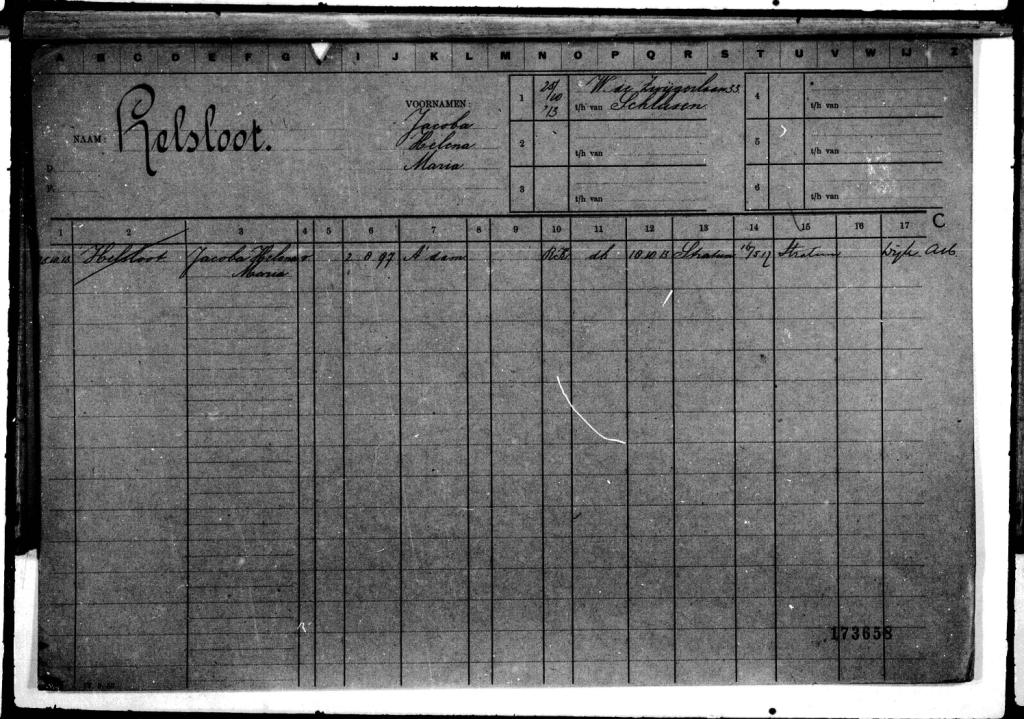 A B C D E F G I J K L M N O P Q R S T U V W IJ Z
NAAM: Helsloot.
VOORNAMEN:
Jacoba
Helena
Maria
D.
P.
1 25/10 '13 W de Zwijgerlaan 33
t/h van Schlüsen
2
t/h van
3
t/h van
4
t/h van
5
t/h van
6
t/h van
1 2 3 4 5 6 7 8 9 10 11 12 13 14 15 16 17 C
Helsloot Jacoba Helena v. 2 8 97 A'dam R.K. db 10 10 13 Stratum 16/5 17 Stratum Arb
Maria
173658